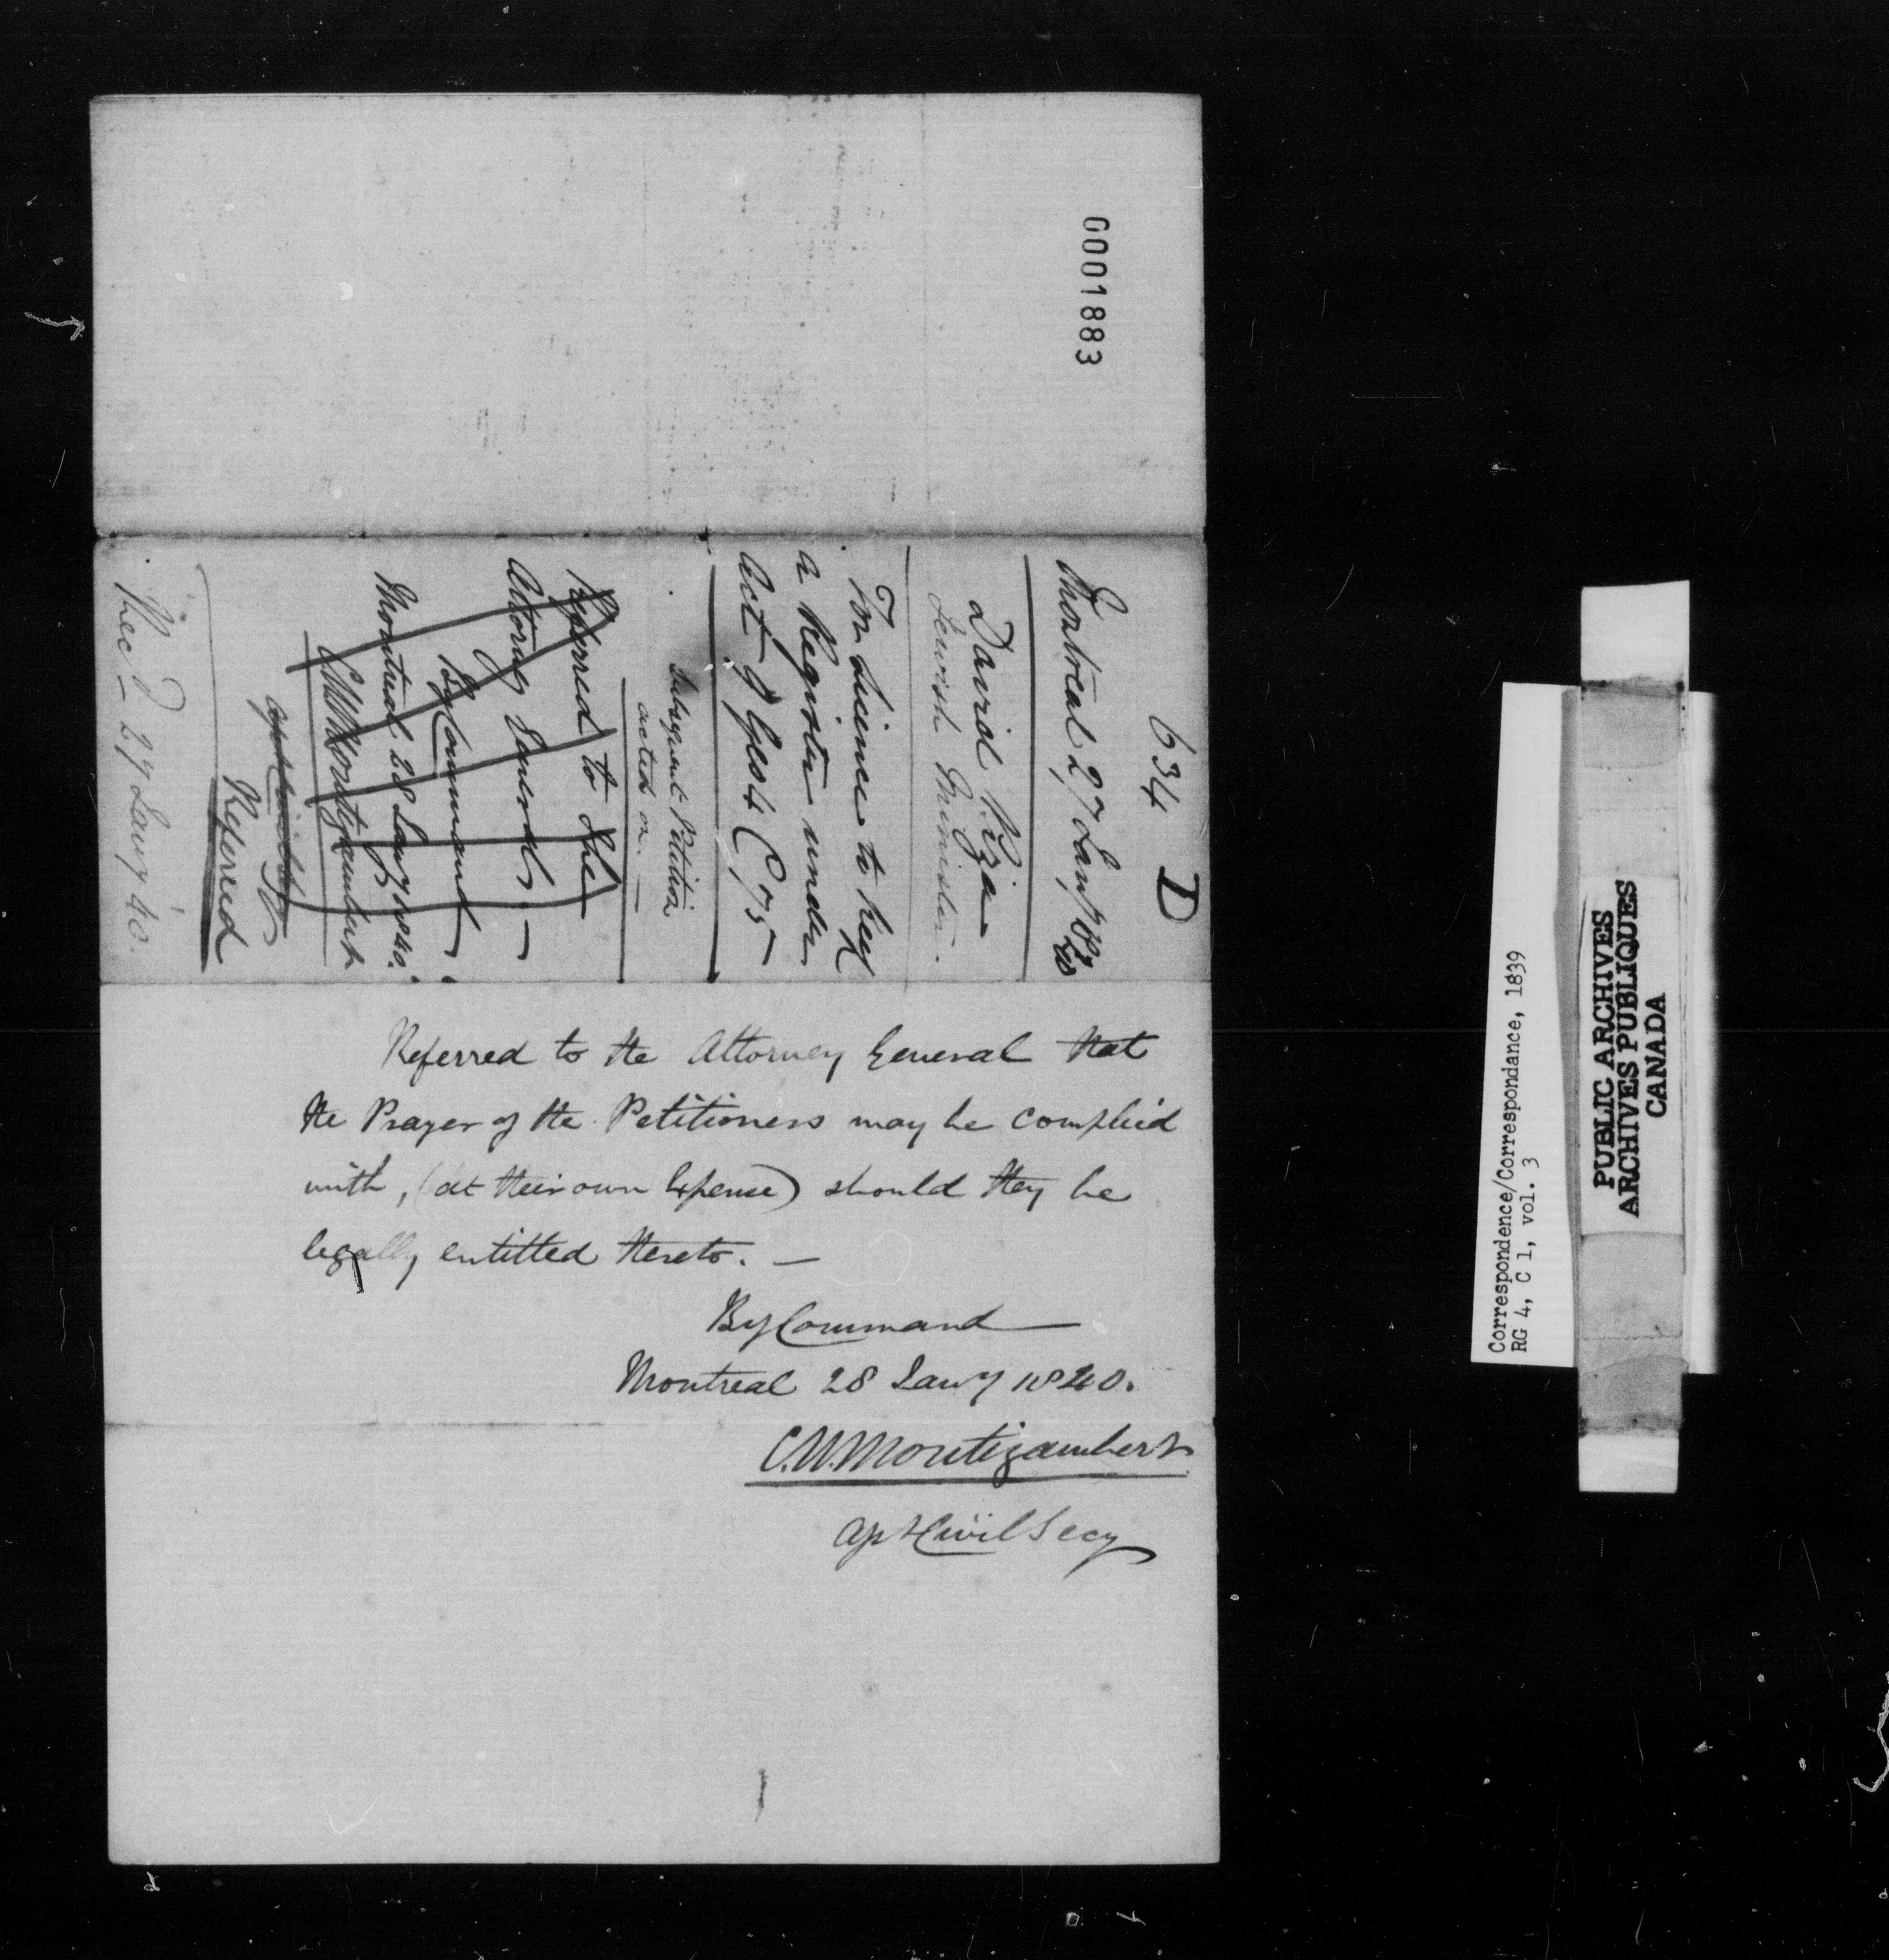 0001883
634 D
Montreal 27 Jany 1840
David Piza
Jewish Minister.
For License to keep
a Register under
Act 9 Geo 4 C 75
Subsequent Petition
acted on. —
Referred to the
Attorney General —
By Command
Montreal 28 Jany 1840.
C M Montizambert
Referred
Rec'd 27 Jany 40.
Referred to the Attorney General that
the Prayer of the Petitioners may be complied
with, (at their own Expense) should they be
legally entitled thereto. —
By Command
Montreal 28 Jany 1840.
C.M. Montizambert
Civil Secy
Correspondence/Correspondance, 1839
RG 4, C 1, vol. 3
PUBLIC ARCHIVES
ARCHIVES PUBLIQUES
CANADA